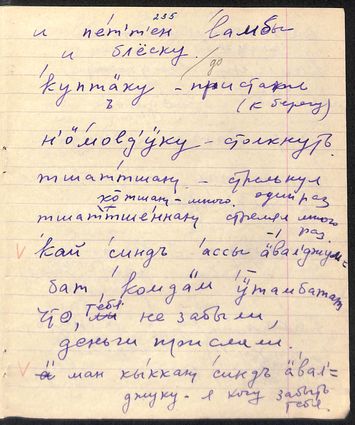 235
и пе́т'т'ен ва́мбы
и блёску.
ку́птӓку - пристали
(к берегу)
н'ӧ́мовд'ӱку - столкнуть.
тшатшаку - стрельнул
хо́тшак - много. один раз
тшаттше́ннаку стрелял много
раз.
кай синдъ а́ссы ӓвал'джум=
бат, комдӓм ӱтамбатат
что, тебя не забыли,
деньги прислали.
ман кы́ккак синдъ ӓвал'=
джуку - я хочу забыть
тебя.